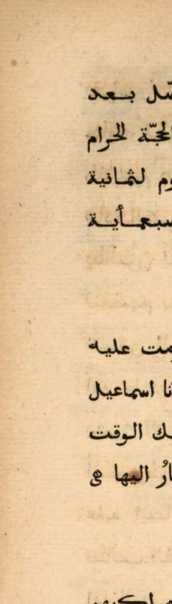 ضّل بعد
الحجّة الحرام
وم لثمانية
سبعمأية
ومت عليه
نا اسماعيل
ك الوقت
ارُ اليها فى